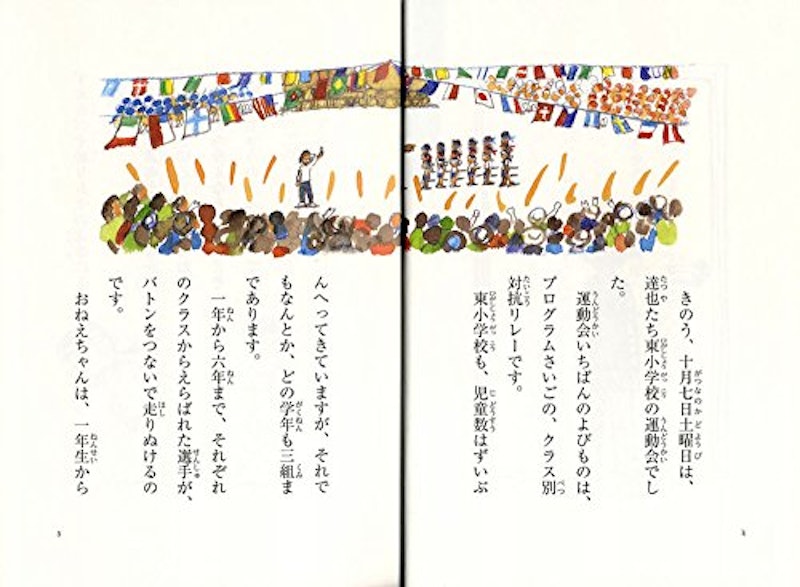 きのう、十月七日土曜日は、
達也たち東小学校の運動会でし
た。
運動会いちばんのよびものは、
プログラムさいごの、クラス別
対抗リレーです。
東小学校も、児童数はずいぶ
んへってきていますが、それで
もなんとか、どの学年も三組ま
であります。
一年から六年まで、それぞれ
のクラスからえらばれた選手が、
バトンをつないで走りぬけるの
です。
おねえちゃんは、一年生から